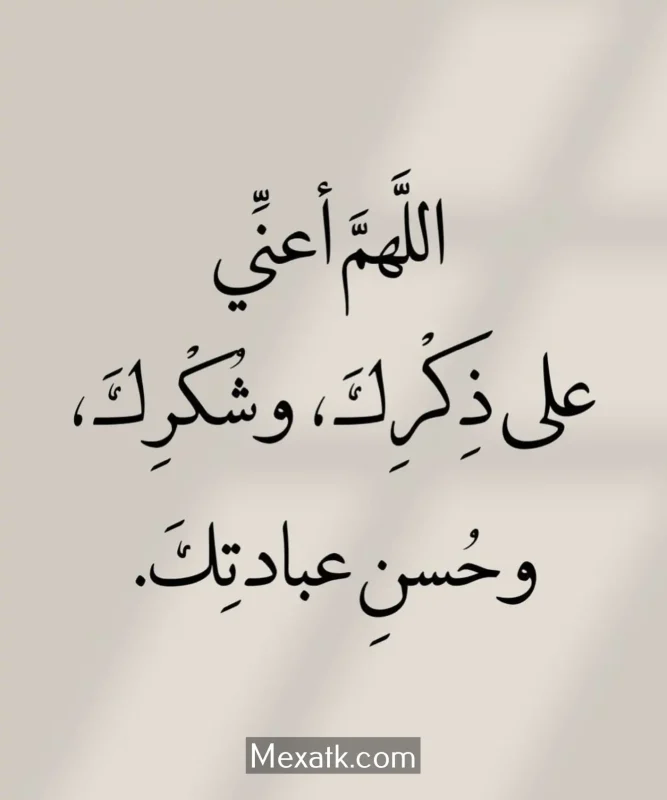 اللَّهمَّ أعنِّي
على ذِكْرِكَ، وشُكْرِكَ،
وحُسنِ عبادتِكَ.
Mexatk.com